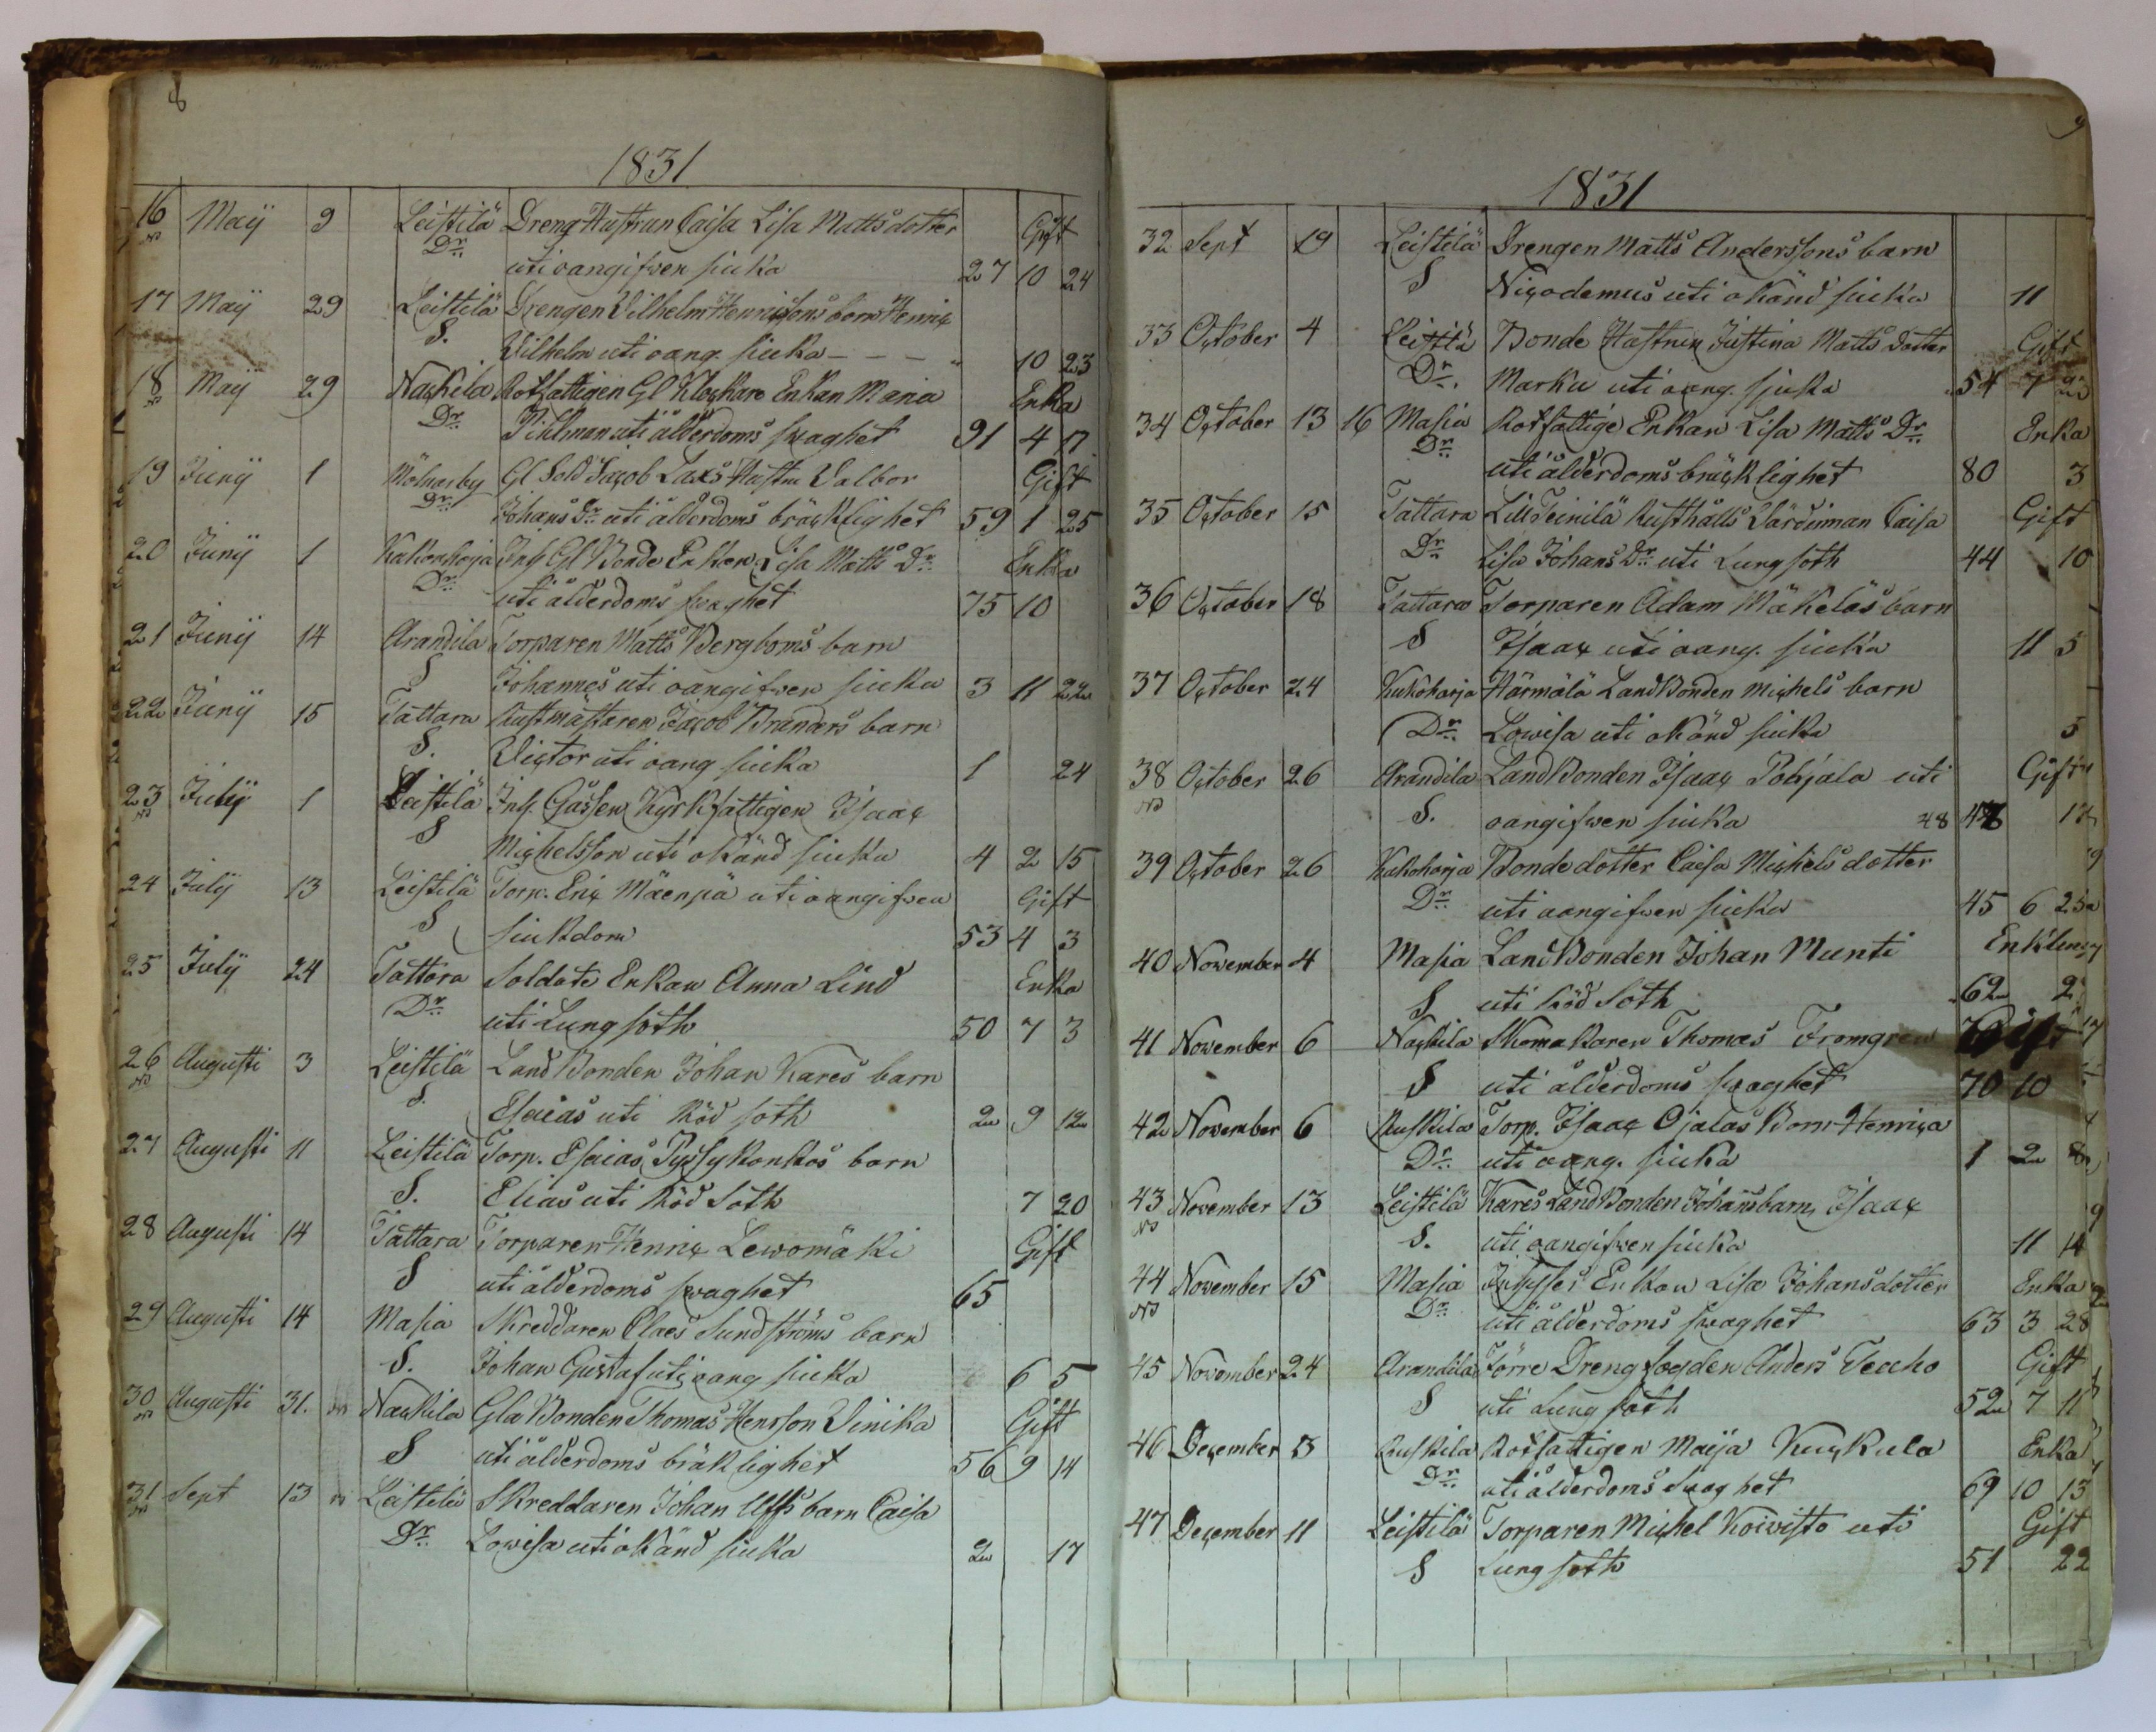 8
1831
16 Maij 9 Leistilä Dreng Hustrun Caisa Lisa Mattsdotter Gift
Dr uti oangifven siuka 27 10 24
17 Maij 29 Leistilä Drengen Vilhelm Henricssons barn Henric
S. Vilhelm uti oang. siuka - - - " 10 23
18 Maij 29 Nackila Rotfattigen Gl Klockare Enkan Maria Enka
Dr Pihlman uti ålderdoms svaghet 91 4 17
19 Junij 1 Mölnarby Gl Sold Jacob Laxs Hustru Valbor Gift
Dr Johans Dr uti ålderdoms bräcklighet 59 1 25
20 Junij 1 Kukonharja Inh Gl Bonde Enkan Lisa Matts Dr Enka
Dr uti ålderdoms svaghet 75 10
21 Junij 14 Arandila Torparen Matts Bergboms barn
S Johannes uti oangifven siuka 3 11 22
22 Junij 15 Tattara Rustmästaren Jacob Branders barn
S. Victor uti oang siuka 1 24
23 Julij 1 Leistilä Inh. Gossen Kyrkfattigen Isaac
S Michelsson uti okänd siuka 4 2 15
24 Julij 13 Leistilä Torp. Eric Mäenpä uti oangifven Gift
S siukdom 53 4 3
25 Julij 24 Tattara Soldate Enkan Anna Lind Enka
Dr uti Lungsoth 50 7 3
26 Augusti 3 Leistilä Landbonden Johan Kares barn
S. Esaias uti Röd soth 2 9 12
27 Augusti 11 Leistilä Torp. Esaias Pyssykankos barn
S. Elias uti Röd Soth 7 20
28 Augusti 14 Tattara Torparen Henric Lewomäki Gift
S uti ålderdoms svaghet 65
29 Augusti 14 Masia Skreddaren Claes Sundströms barn
S. Johan Gustaf uti oang siuka 6 5
30 Augusti 31. Nackila Gla Bonden Thomas Henrsson Vinika Gift
S uti ålderdoms bräklighet 56 9 14
31 Sept 13 Leistilä Skreddaren Johan Ulffs barn Caisa
Dr Lowisa uti okänd siuka 2 17
9
1831
32 Sept 19 Leistilä Drengen Matts Anderssons barn
S Nicodemus uti okänd siuka 11
33 October 4 Leistilä Bonde Hustrun Justina Matts dotter Gift
Dr. Marku uti oang. sjuka 54 7
34 October 13 16 Masia Rotfattige Enkan Lisa Matts Dr Enka
Dr uti ålderdoms bräcklighet 80 3
35 October 15 Tattara Lill Teinilä Rusthålls Värdinnan Caisa Gift
Dr Lisa Johans Dr uti Lungsoth 44 10
36 October 18 Tattara Torparen Adam Mäkeläs barn
S Isaac uti oang. siuka 11 5
37 October 24 Kukoharja Härmälä Landbonden Michels barn
Dr Lowisa uti okänd siuka 5
38 October 26 Arandila Landbonden Isaac Pohjala uti Gift
S. oangifven siuka 48 17
39 October 26 Kukoharja Bondedotter Caisa Michels dotter
Dr uti oangifven siuka 45 6 25
40 November 4 Masia Landbonden Johan Munti Enkling
S uti Röd Soth 62 2
41 November 6 Nackila Skomakaren Thomas Fromgren Gift
S uti ålderdoms svaghet 70 10
42 November 6 Ruskila Torp. Isaac Ojalas Barn Henrica
Dr uti oang. siuka 1 2 8
43 November 13 Leistilä Kares Landbonden Johans barn Isaac
S. uti oangifven siuka 11 14
44 November 15 Masia Inhyses Enkan Lisa Johansdotter Enka
Dr uti ålderdoms svaghet 63 3 28
45 November 24 Arandila Förre Drengfogden Anders Teuho Gift
S uti Lungsoth 52 7 11
46 December 8 Ruskila Rotfattigen Maija Kuckula Enka
Dr uti ålderdoms Svaghet 69 10 13
47 December 11 Leistilä Torparen Michel Koivisto uti Gift
S Lungsoth 51 22